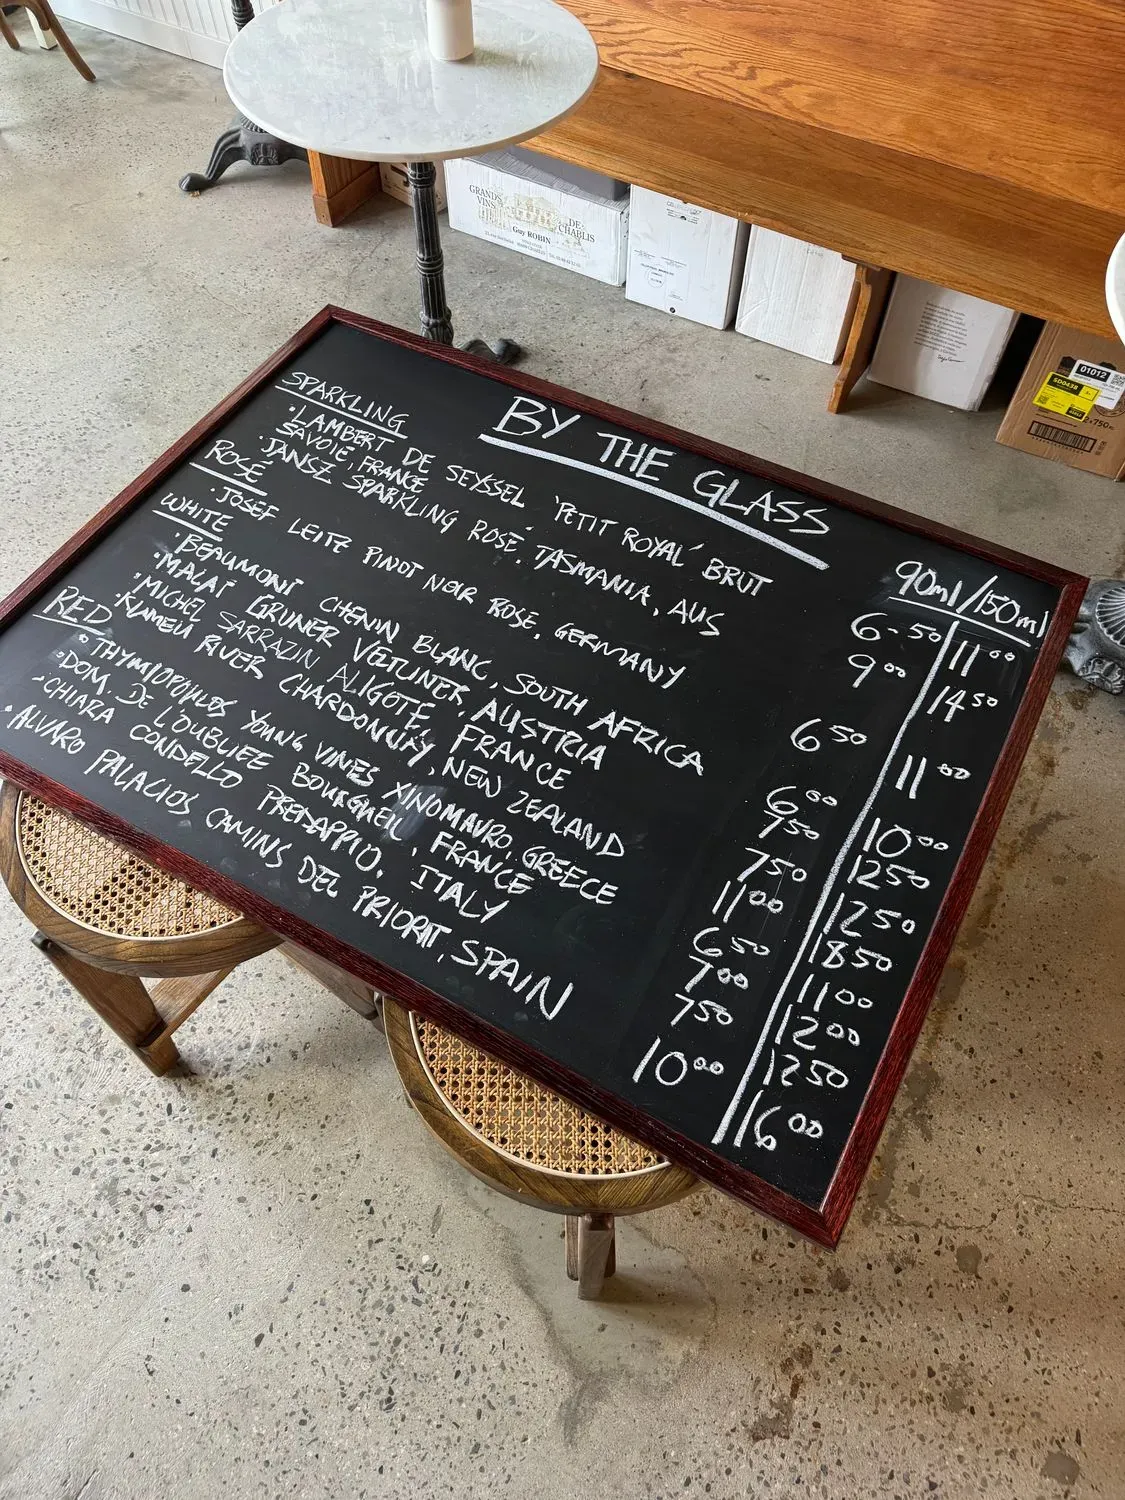 GRANDS VINS DE CHABLIS
Guy ROBIN
01012
SD0438
BY THE GLASS
90ml/150ml
SPARKLING
·LAMBERT DE SEYSSEL 'PETIT ROYAL' BRUT 6-50 11 00
SAVOIE, FRANCE
·JANSZ SPARKLING ROSÉ, TASMANIA, AUS 9 00 14 50
ROSÉ
·JOSEF LEITZ PINOT NOIR ROSE, GERMANY 6 50 11 00
WHITE
·BEAUMONT CHENIN BLANC, SOUTH AFRICA 6 00 10 00
·MALAT GRUNER VELTLINER, AUSTRIA 7 50 12 50
·MICHEL SARRAZIN ALIGOTE, FRANCE 7 50 12 50
·KUMEU RIVER CHARDONNAY, NEW ZEALAND 11 00 18 50
RED
·THYMIOPOULOS YOUNG VINES XINOMAVRO, GREECE 6 50 11 00
·DOM. DE L'OUBLIEE BOURGUEIL, FRANCE 7 00 12 00
·CHIARA CONDELLO PREDAPPIO, ITALY 7 50 12 50
·ALVARO PALACIOS CAMINS DEL PRIORAT, SPAIN 10 00 16 00